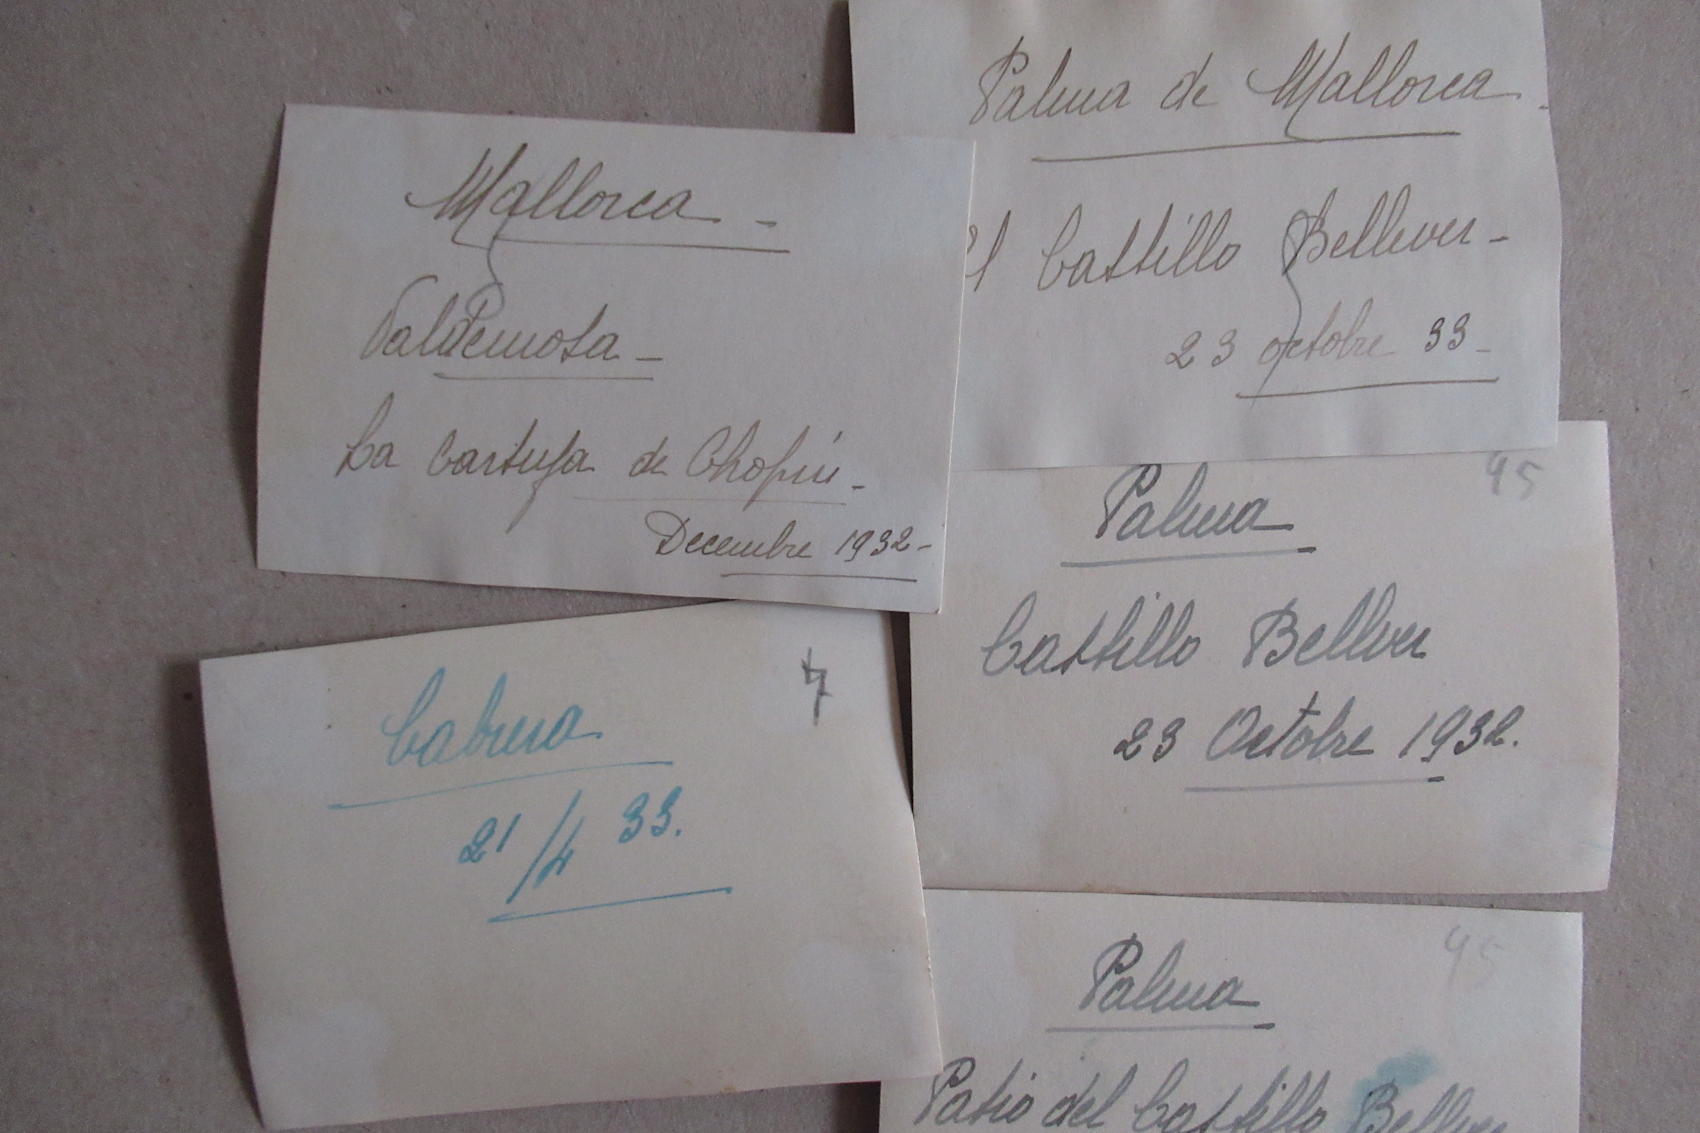 Mallorca -
Valldemosa -
La Cartuja de Chopin -
Decembre 1932 -
Palma de Mallorca.
El Castillo Bellever -
23 octobre 33 -
95
Palma
Castillo Bellver
23 Octobre 1932.
7
Cabrera
21/4 33.
95
Palma
Patio del Castillo Bellver